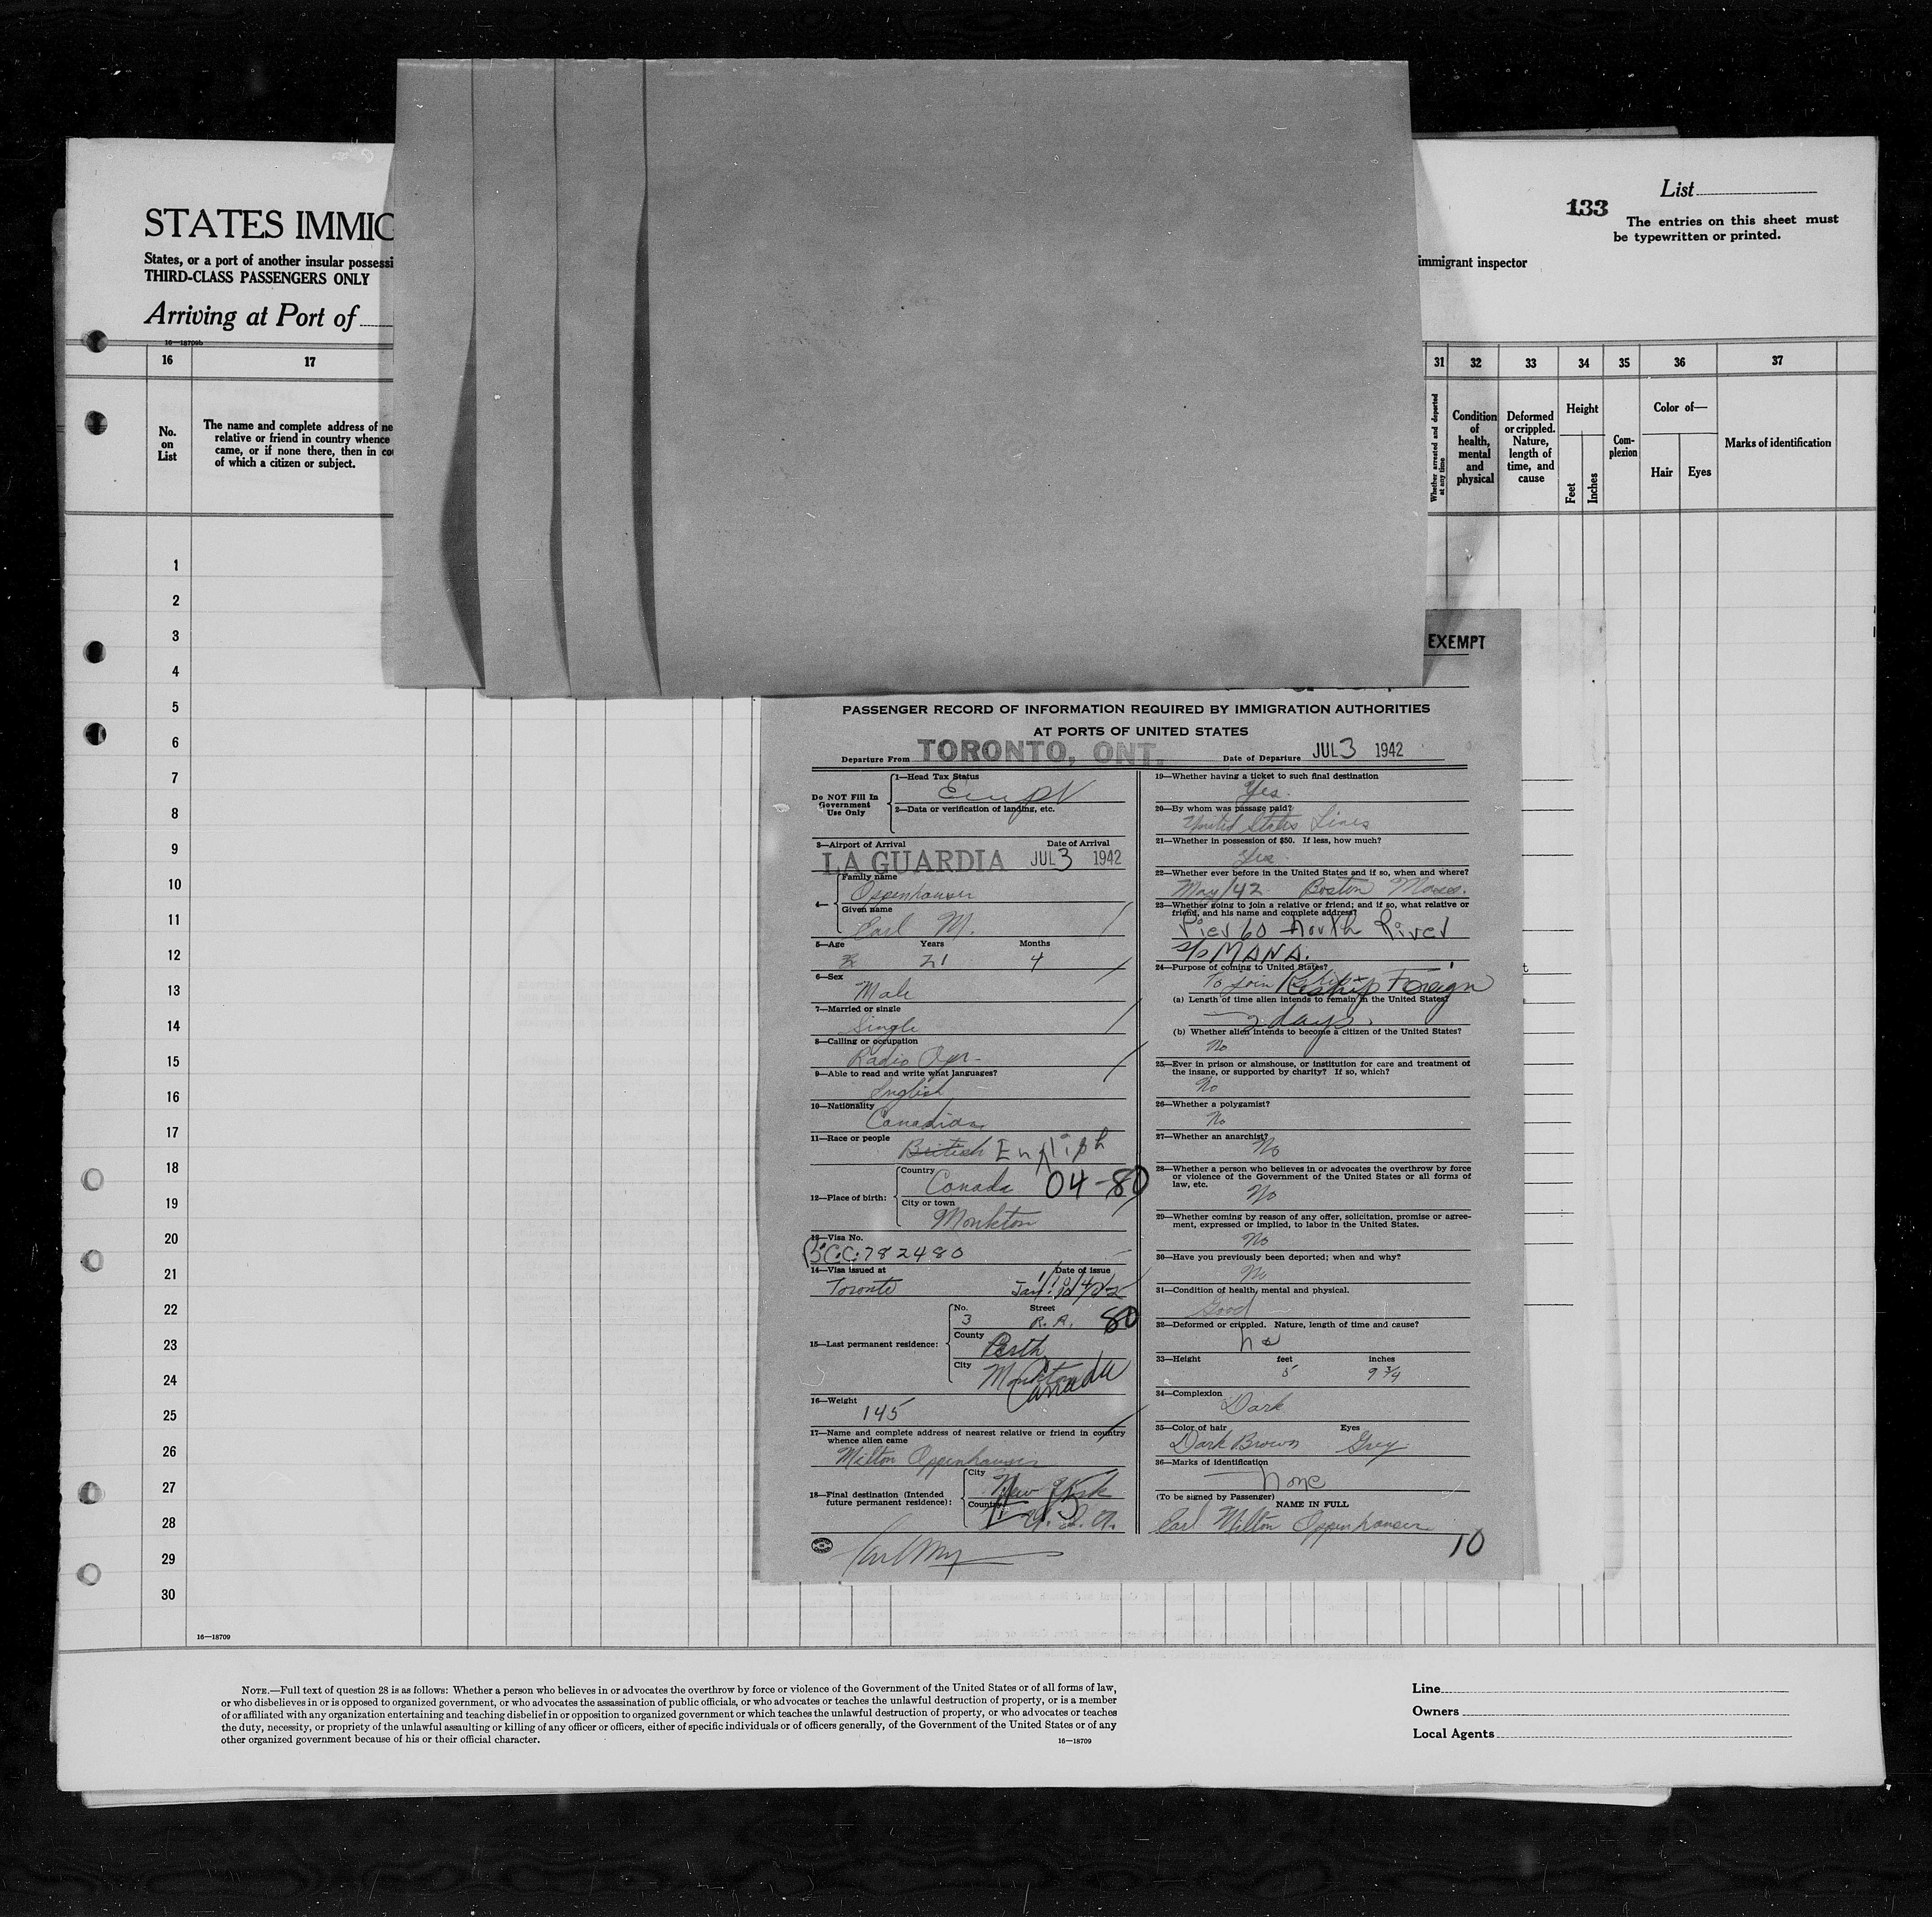 STATES IMMIG
States, or a port of another insular possessi
THIRD-CLASS PASSENGERS ONLY
Arriving at Port of
16—18709b
133
List
The entries on this sheet must
be typewritten or printed.
immigrant inspector
16
17
31
32
33
34
35
36
37
No.
on
List
The name and complete address of ne
relative or friend in country whence
came, or if none there, then in cou
of which a citizen or subject.
Whether arrested and deported
at any time
Condition
of
health,
mental
and
physical
Deformed
or crippled.
Nature,
length of
time, and
cause
Height
Feet
Inches
Com-
plexion
Color of—
Hair
Eyes
Marks of identification
1
2
3
4
5
6
7
8
9
10
11
12
13
14
15
16
17
18
19
20
21
22
23
24
25
26
27
28
29
30
16—18709
EXEMPT
PASSENGER RECORD OF INFORMATION REQUIRED BY IMMIGRATION AUTHORITIES
AT PORTS OF UNITED STATES
Departure From TORONTO, ONT.
Date of Departure JUL 3 1942
Do NOT Fill In
Government
Use Only
1—Head Tax Status
2—Data or verification of landing, etc.
3—Airport of Arrival
Date of Arrival
LA GUARDIA JUL 3 1942
4—
Family name
Oppenhauser
Given name
Earl M.
5—Age Years Months
21 4
6—Sex
Male
7—Married or single
Single
8—Calling or occupation
Radio Opr-
9—Able to read and write what languages?
English
10—Nationality
Canadian
11—Race or people
British English
12—Place of birth:
Country
Canada 04-80
City or town
Monkton
13—Visa No.
B.C.C. 782480
14—Visa issued at
Date of issue
Toronto
15—Last permanent residence:
No. Street
3 R.A. 80
County
Perth
City
Monkton
Canada
16—Weight
145
17—Name and complete address of nearest relative or friend in country
whence alien came
Milton Oppenhauser
18—Final destination (Intended
future permanent residence):
City
New York
Country
U.S.A.
19—Whether having a ticket to such final destination
Yes.
20—By whom was passage paid?
United States Lines
21—Whether in possession of $50. If less, how much?
Yes
22—Whether ever before in the United States and if so, when and where?
May/42 Boston Mass.
23—Whether going to join a relative or friend; and if so, what relative or
friend, and his name and complete address?
Pier 60 North River
S/S MANA.
24—Purpose of coming to United States?
To join Reship Foreign
(a) Length of time alien intends to remain in the United States?
2 days.
(b) Whether alien intends to become a citizen of the United States?
No
25—Ever in prison or almshouse, or institution for care and treatment of
the insane, or supported by charity? If so, which?
No
26—Whether a polygamist?
No
27—Whether an anarchist?
No
28—Whether a person who believes in or advocates the overthrow by force
or violence of the Government of the United States or all forms of
law, etc.
No
29—Whether coming by reason of any offer, solicitation, promise or agree-
ment, expressed or implied, to labor in the United States.
No
30—Have you previously been deported; when and why?
No
31—Condition of health, mental and physical.
Good
32—Deformed or crippled. Nature, length of time and cause?
no
33—Height feet inches
5 9 3/4
34—Complexion
Dark
35—Color of hair Eyes
Dark Brown Grey
36—Marks of identification
None
(To be signed by Passenger)
NAME IN FULL
Earl Milton Oppenhauser
10
NOTE.—Full text of question 28 is as follows: Whether a person who believes in or advocates the overthrow by force or violence of the Government of the United States or of all forms of law,
or who disbelieves in or is opposed to organized government, or who advocates the assassination of public officials, or who advocates or teaches the unlawful destruction of property, or is a member
of or affiliated with any organization entertaining and teaching disbelief in or opposition to organized government or which teaches the unlawful destruction of property, or who advocates or teaches
the duty, necessity, or propriety of the unlawful assaulting or killing of any officer or officers, either of specific individuals or of officers generally, of the Government of the United States or of any
other organized government because of his or their official character.
16—18709
Line
Owners
Local Agents